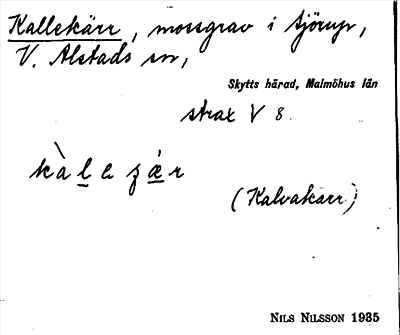 Kallekärr, mossgrav i Sjörup,
V. Alstads sn,
Skytts härad, Malmöhus län
strax V 8.
kàl̲e ʒǽ̲r
(Kalvakärr)
NILS NILSSON 1935